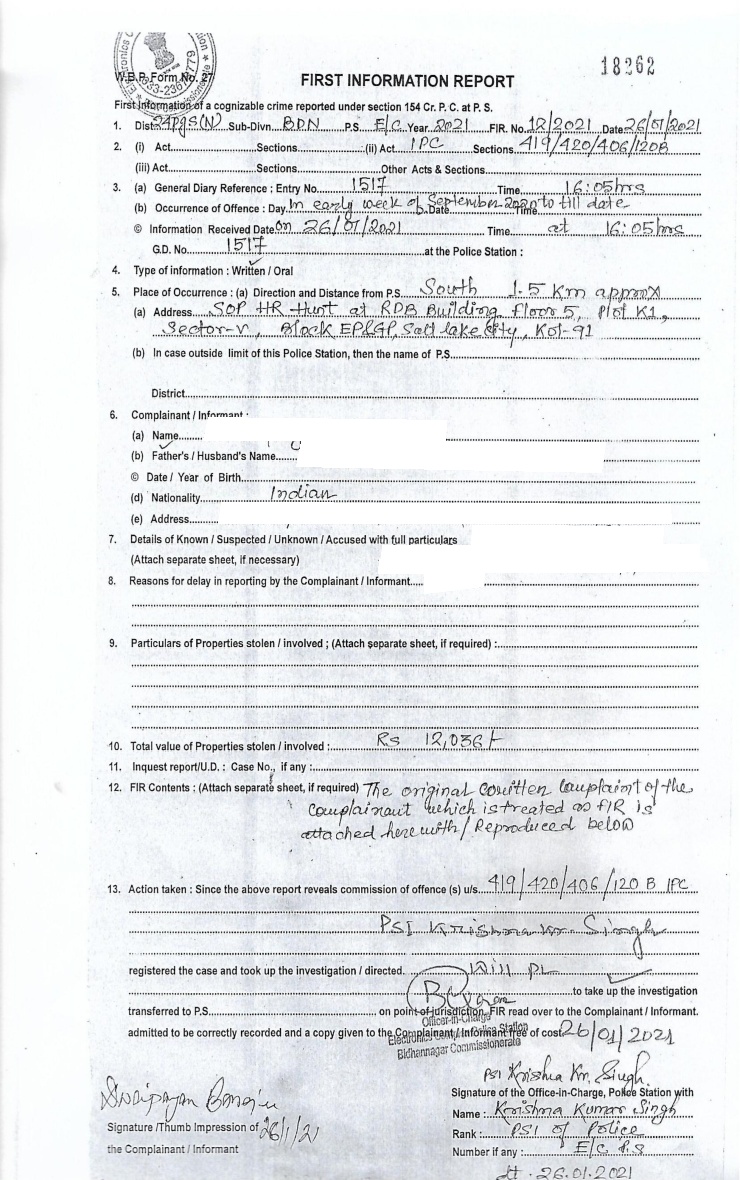 18262
W.B.P. Form No. 27
FIRST INFORMATION REPORT
First Information of a cognizable crime reported under section 154 Cr. P. C. at P. S.
1. Dist. 24pgs(N) Sub-Divn. BDN P.S. E/C Year 2021 FIR. No. 12/2021 Date 26/01/2021
2. (i) Act Sections (ii) Act IPC Sections 419/420/406/120B
(iii) Act Sections Other Acts & Sections
3. (a) General Diary Reference : Entry No. 1517 Time 16:05hrs
(b) Occurrence of Offence : Day In early week of September 2020 to till date Date Time
© Information Received Date On 26/01/2021 Time at 16:05hrs
G.D. No. 1517 at the Police Station :
4. Type of information : Written / Oral
5. Place of Occurrence : (a) Direction and Distance from P.S. South 1.5 Km approx
(a) Address SOP HR Hunt at RDB Building, Floor 5, Plot K1,
Sector-V, Block EP&GP, Salt lake City, Kol-91
(b) In case outside limit of this Police Station, then the name of P.S.
District
6. Complainant / Informant :
(a) Name
(b) Father's / Husband's Name
© Date / Year of Birth
(d) Nationality Indian
(e) Address
7. Details of Known / Suspected / Unknown / Accused with full particulars
(Attach separate sheet, if necessary)
8. Reasons for delay in reporting by the Complainant / Informant
9. Particulars of Properties stolen / involved ; (Attach separate sheet, if required) :
10. Total value of Properties stolen / involved : Rs 12,036/-
11. Inquest report/U.D. : Case No., if any :
12. FIR Contents : (Attach separate sheet, if required) The original written complaint of the
complainant which is treated as FIR is
attached herewith/Reproduced below
13. Action taken : Since the above report reveals commission of offence (s) u/s. 419/420/406/120 B IPC
PSI Krishna Kr. Singh
registered the case and took up the investigation / directed. Will pl.
to take up the investigation
transferred to P.S. on point of jurisdiction, FIR read over to the Complainant / Informant.
Officer-in-Charge
admitted to be correctly recorded and a copy given to the Complainant / Informant free of cost. 26/01/2021
Bidhannagar Commissionerate
PSI Krishna Kr. Singh
Signature of the Office-in-Charge, Police Station with
Signature /Thumb Impression of 26/1/21
the Complainant / Informant
Name : Krishna Kumar Singh
Rank : PSI of Police
Number if any : E/C P.S
dt - 26.01.2021